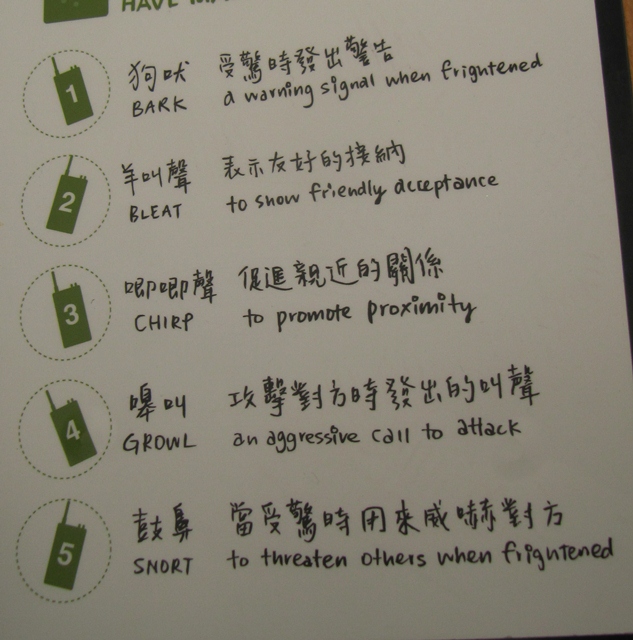 HAVE
1
狗吠 受驚時發出警告
BARK a warning signal when frightened
2
羊叫聲 表示友好的接納
BLEAT to show friendly acceptance
3
唧唧聲 促進親近的關係
CHIRP to promote proximity
4
嗥叫 攻擊對方時發出的叫聲
GROWL an aggressive call to attack
5
鼓鼻 當受驚時用來威嚇對方
SNORT to threaten others when frightened